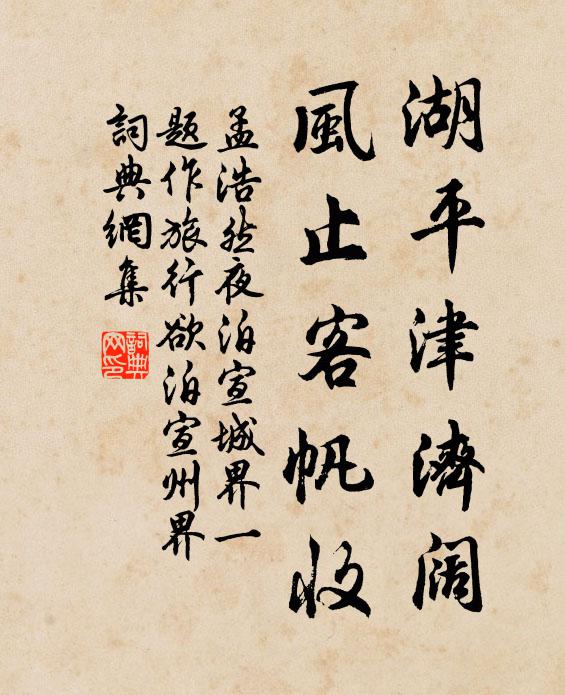 湖平津濟阔
風止客帆收
孟浩然夜泊宣城界一
题作旅行欲泊宣州界
詞典網集
詞典
网印